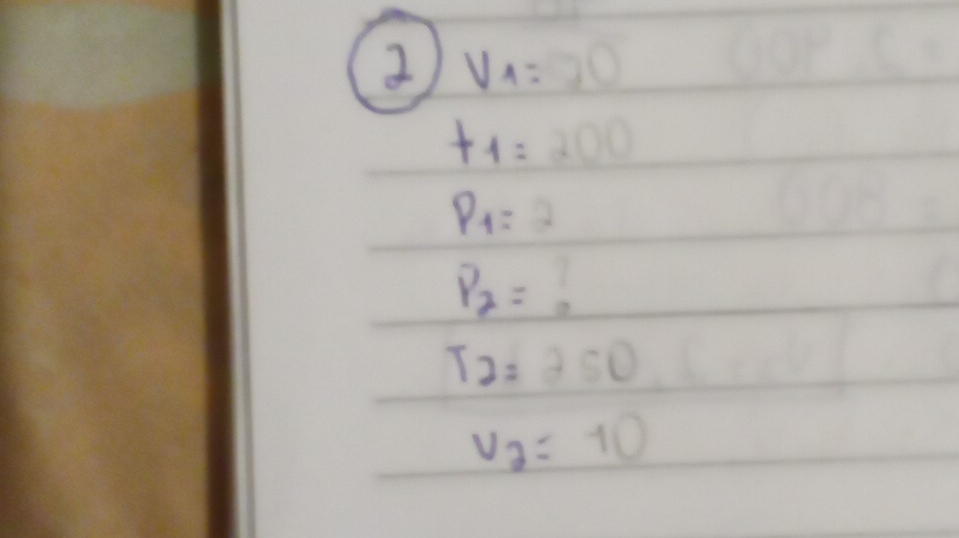 2 V1= 20
t1= 200
P1= 2
P2= ?
T2= 250
V2= 10